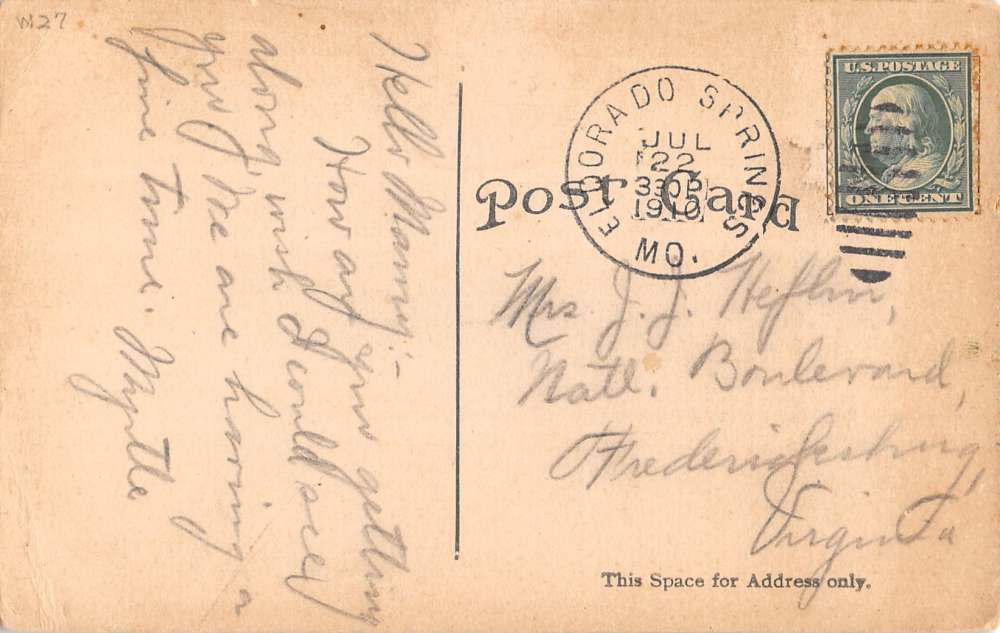 W27
Hello Mammy:-
How are you getting
along, wish I could see
you. We are having a
fine time. Myrtle
EL DORADO SPRINGS
JUL
22
330P
1910
MO.
U.S. POSTAGE
ONE CENT
Post Card
Mrs. J. J. Heflin,
Natl. Boulevard,
Fredericksburg,
Virginia
This Space for Address only.